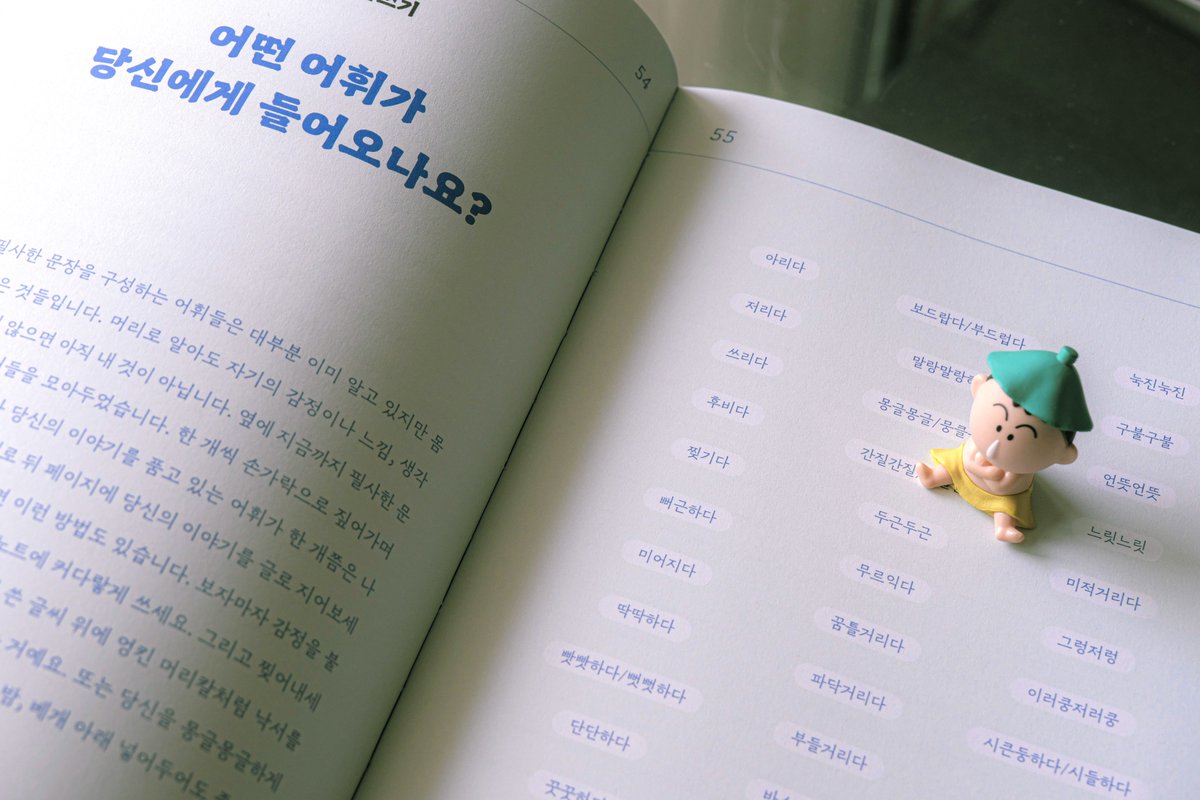 54
어떤 어휘가
당신에게 들어오나요?
필사한 문장을 구성하는 어휘들은 대부분 이미 알고 있지만 몸
은 것들입니다. 머리로 알아도 자기의 감정이나 느낌, 생각
않으면 아직 내 것이 아닙니다. 옆에 지금까지 필사한 문
들을 모아두었습니다. 한 개씩 손가락으로 짚어가며
당신의 이야기를 품고 있는 어휘가 한 개쯤은 나
로 뒤 페이지에 당신의 이야기를 글로 지어보세
면 이런 방법도 있습니다. 보자마자 감정을 불
노트에 커다랗게 쓰세요. 그리고 찢어내세
쓴 글씨 위에 엉킨 머리칼처럼 낙서를
거예요. 또는 당신을 몽글몽글하게
밤, 베개 아래 넣어두어도
55
아리다
저리다
쓰리다
후비다
찢기다
뻐근하다
미어지다
딱딱하다
빳빳하다/뻣뻣하다
단단하다
보드랍다/부드럽다
말랑말랑
몽글몽글/뭉클
간질간질
두근두근
무르익다
꿈틀거리다
파닥거리다
부들거리다
눅진눅진
구불구불
언뜻언뜻
느릿느릿
미적거리다
그렁저렁
이러쿵저러쿵
시큰둥하다/시들하다